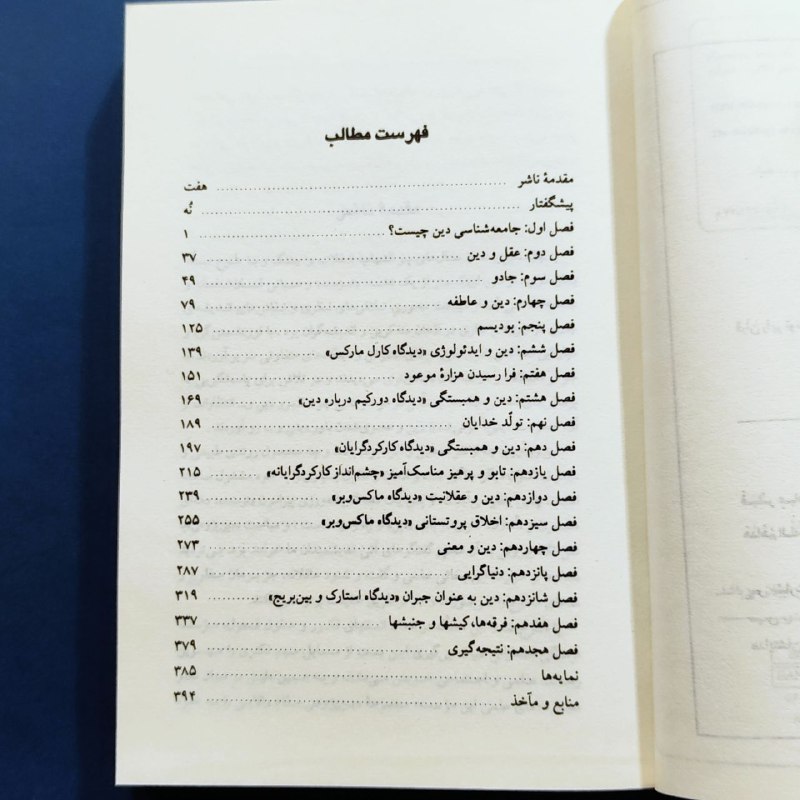 فهرست مطالب
مقدمهٔ ناشر ........ هفت
پیشگفتار ........ نُه
فصل اول: جامعه‌شناسی دین چیست؟ ........ ۱
فصل دوم: عقل و دین ........ ۳۷
فصل سوم: جادو ........ ۴۹
فصل چهارم: دین و عاطفه ........ ۷۹
فصل پنجم: بودیسم ........ ۱۲۵
فصل ششم: دین و ایدئولوژی «دیدگاه کارل مارکس» ........ ۱۳۹
فصل هفتم: فرا رسیدن هزارهٔ موعود ........ ۱۵۱
فصل هشتم: دین و همبستگی «دیدگاه دورکیم درباره دین» ........ ۱۶۹
فصل نهم: تولّد خدایان ........ ۱۸۹
فصل دهم: دین و همبستگی «دیدگاه کارکردگرایان» ........ ۱۹۷
فصل یازدهم: تابو و پرهیز مناسک‌آمیز «چشم‌انداز کارکردگرایانه» ........ ۲۱۵
فصل دوازدهم: دین و عقلانیت «دیدگاه ماکس‌وبر» ........ ۲۳۹
فصل سیزدهم: اخلاق پروتستانی «دیدگاه ماکس‌وبر» ........ ۲۵۵
فصل چهاردهم: دین و معنی ........ ۲۷۳
فصل پانزدهم: دنیاگرایی ........ ۲۸۷
فصل شانزدهم: دین به عنوان جبران «دیدگاه استارک و بین‌بریج» ........ ۳۱۹
فصل هفدهم: فرقه‌ها، کیشها و جنبشها ........ ۳۳۷
فصل هجدهم: نتیجه‌گیری ........ ۳۷۹
نمایه‌ها ........ ۳۸۵
منابع و مآخذ ........ ۳۹۴